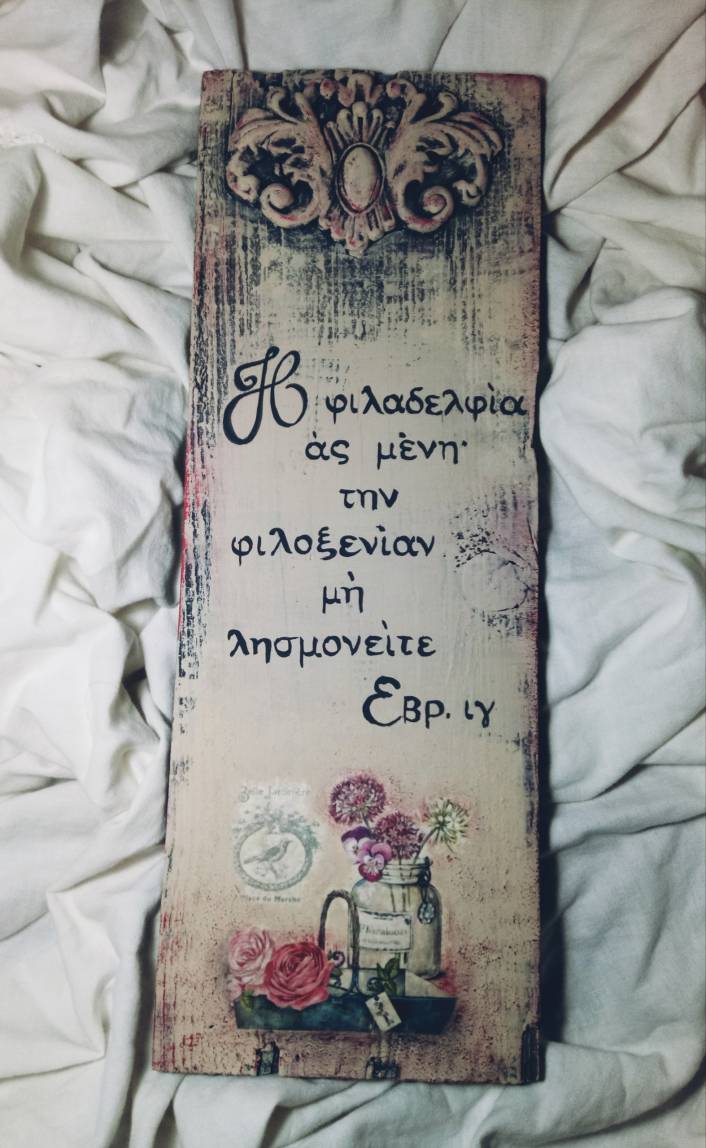 Η φιλαδελφὶα
ὰς μὲνη·
την
φιλοξενὶαν
μὴ
λησμονεὶτε
Εβρ. ιγ
Belle Jardinière
Place du Marche